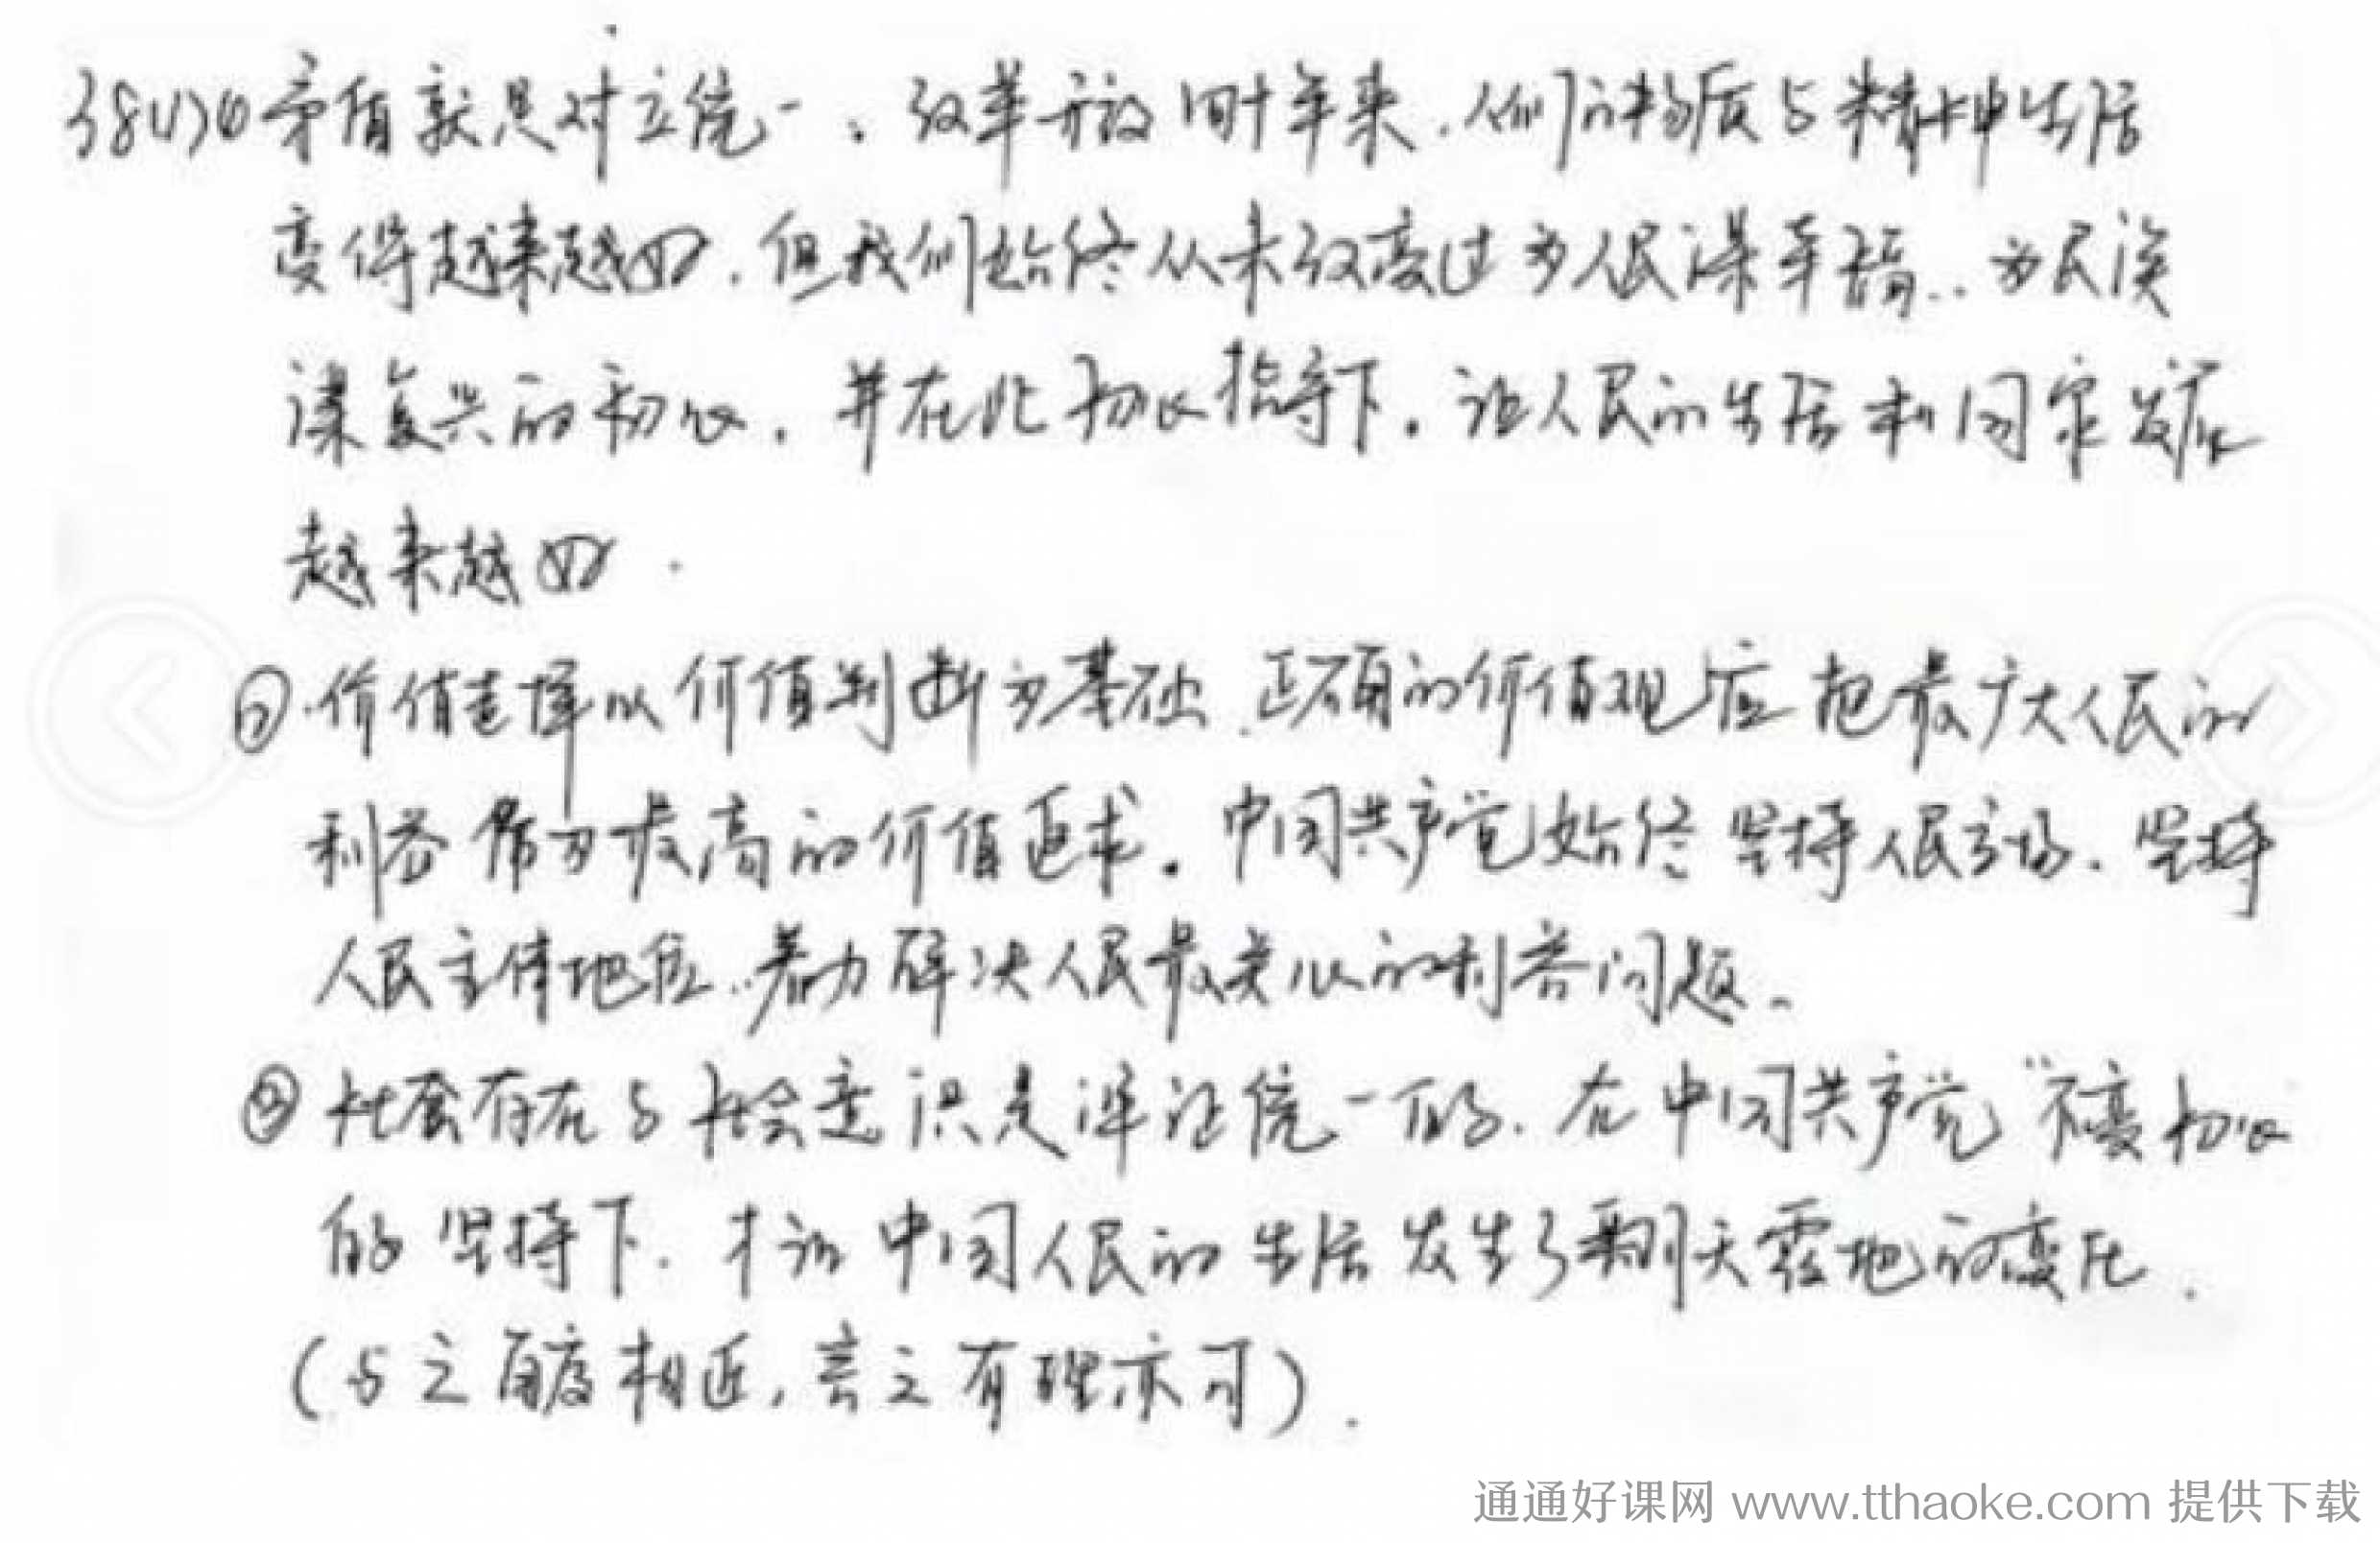 38(1)①矛盾就是对立统一。改革开放四十年来,人们的物质与精神生活
变得越来越好,但我们始终从未改变过为人民谋幸福,为民族
谋复兴的初心,并在此初心指导下,让人民的生活和国家发展
越来越好.
②价值选择以价值判断为基础,正确的价值观应把最广大人民的
利益作为最高的价值追求。中国共产党始终坚持人民立场、坚持
人民主体地位,着力解决人民最关心的利益问题。
③社会存在与社会意识是辩证统一的.在中国共产党"不变初心
的坚持下.才让中国人民的生活发生了翻天覆地的变化.
(与之角度相近,言之有理亦可).
通通好课网 www.tthaoke.com 提供下载